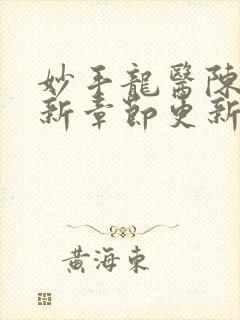 妙手龍醫陳
新章節更新
黃海東